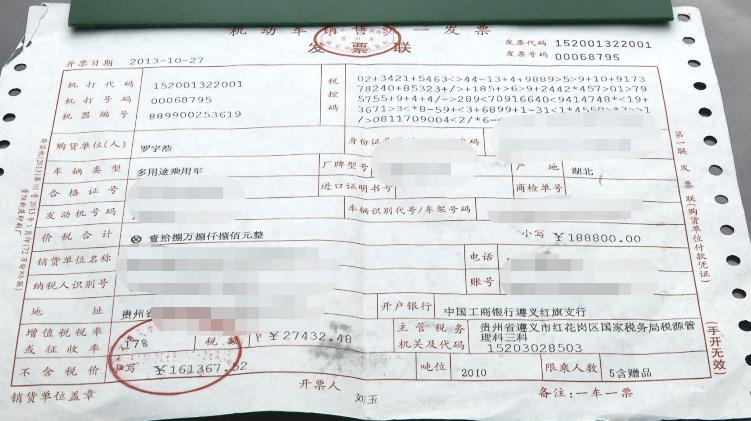 机动车销售统一发票
发票联
开票日期 2013-10-27
发票代码 152001322001
发票号码 00068795
机打代码 152001322001
机打号码 00068795
机器编号 889900253619
税控码
02+3421+5463<>44-13+4+9889>5>9+10+9173
78240+85323+/>+185+>6>9+2442*457>01>79
5755+9+4+4/->289<70916640<9414748*<19+
3671>3<*8-59+<3+6899+1-31<1*4550>*?>>1
/>0811709004<2/*6-
购货单位(人) 罗宇浩
车辆类型 多用途乘用车 厂牌型号 产地 湖北
合格证号 进口证明书号 商检单号
发动机号码 车辆识别代号/车架号码
价税合计 ⊗ 壹拾捌万捌仟捌佰元整 小写 ¥188800.00
销货单位名称 电话
纳税人识别号 账号
地址 贵州省 开户银行 中国工商银行遵义红旗支行
增值税税率或征收率 17% 税额 ¥27432.48
主管税务机关及代码 贵州省遵义市红花岗区国家税务局税源管理科三科
15203028503
不含税价 小写 ¥161367.52 吨位 2010 限乘人数 5含赠品
销货单位盖章 开票人 刘玉 备注:一车一票
第一联 发票联(购货单位付款凭证)
(手开无效)